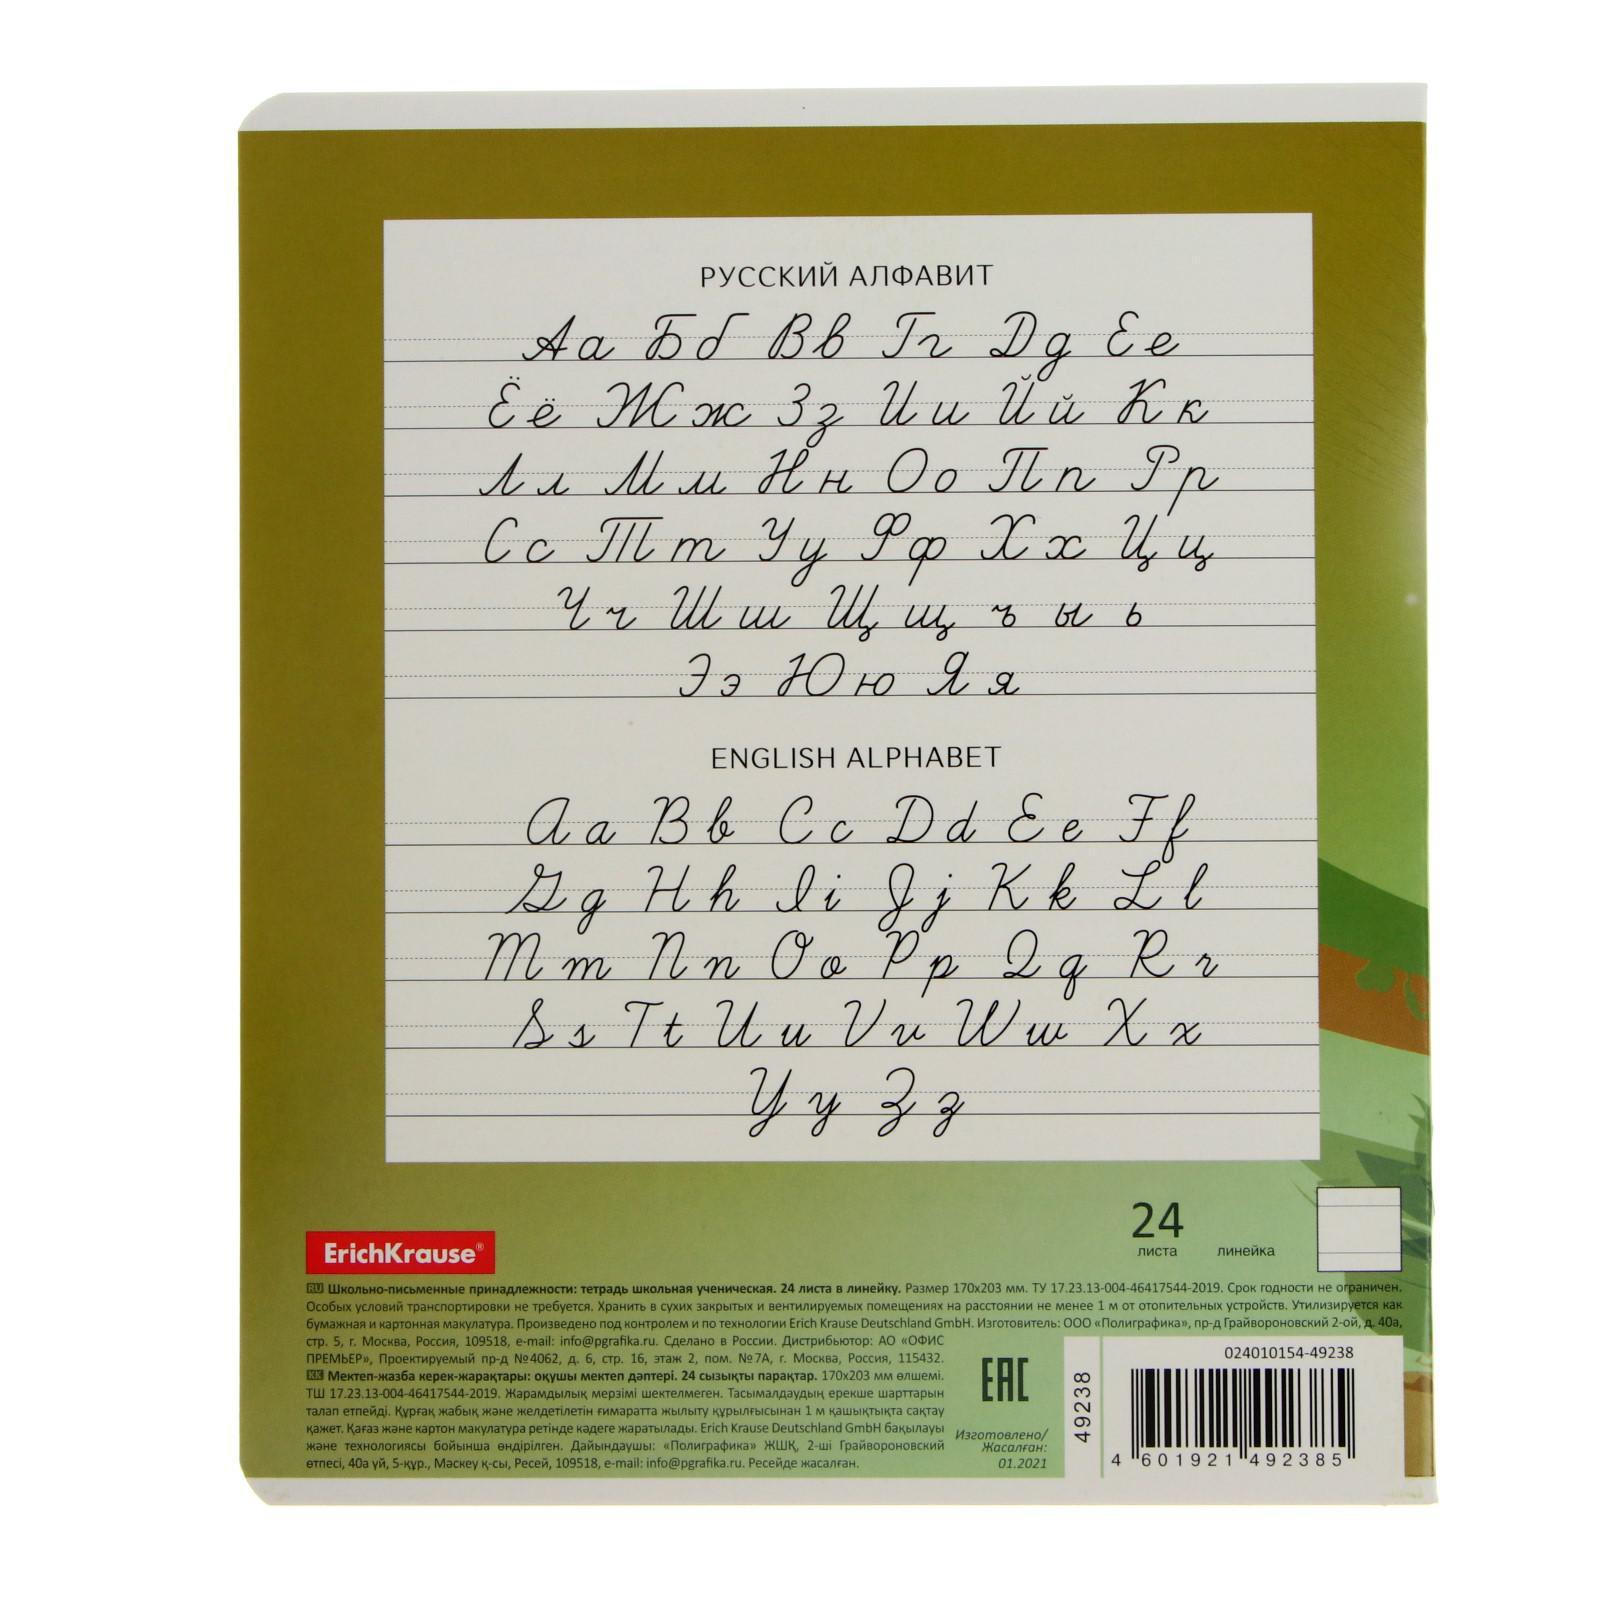 РУССКИЙ АЛФАВИТ
Аа Бб Вв Гг Дд Ее
Ёё Жж Зз Ии Йй Кк
Лл Мм Нн Оо Пп Рр
Сс Тт Уу Фф Хх Цц
Чч Шш Щщ ъ ы ь
Ээ Юю Яя
ENGLISH ALPHABET
Aa Bb Cc Dd Ee Ff
Gg Hh Ii Jj Kk Ll
Mm Nn Oo Pp Qq Rr
Ss Tt Uu Vv Ww Xx
Yy Zz
24
листа линейка
ErichKrause®
RU Школьно-письменные принадлежности: тетрадь школьная ученическая. 24 листа в линейку. Размер 170x203 мм. ТУ 17.23.13-004-46417544-2019. Срок годности не ограничен.
Особых условий транспортировки не требуется. Хранить в сухих закрытых и вентилируемых помещениях на расстоянии не менее 1 м от отопительных устройств. Утилизируется как
бумажная и картонная макулатура. Произведено под контролем и по технологии Erich Krause Deutschland GmbH. Изготовитель: ООО «Полиграфика», пр-д Грайвороновский 2-ой, д. 40а,
стр. 5, г. Москва, Россия, 109518, e-mail: info@pgrafika.ru. Сделано в России. Дистрибьютор: АО «ОФИС
ПРЕМЬЕР», Проектируемый пр-д №4062, д. 6, стр. 16, этаж 2, пом. №7А, г. Москва, Россия, 115432.
KK Мектеп-жазба керек-жарақтары: оқушы мектеп дәптері. 24 сызықты парақтар. 170x203 мм өлшемі.
ТШ 17.23.13-004-46417544-2019. Жарамдылық мерзімі шектелмеген. Тасымалдаудың ерекше шарттарын
талап етпейді. Құрғақ жабық және желдетілетін ғимаратта жылыту құрылғысынан 1 м қашықтықта сақтау
қажет. Қағаз және картон макулатура ретінде кәдеге жаратылады. Erich Krause Deutschland GmbH бақылауы
және технологиясы бойынша өндірілген. Дайындаушы: «Полиграфика» ЖШҚ, 2-ші Грайвороновский
өтпесі, 40а үй, 5-құр., Мәскеу қ-сы, Ресей, 109518, e-mail: info@pgrafika.ru. Ресейде жасалған.
EAC
Изготовлено/
Жасалған:
01.2021
49238
024010154-49238
4 601921 492385